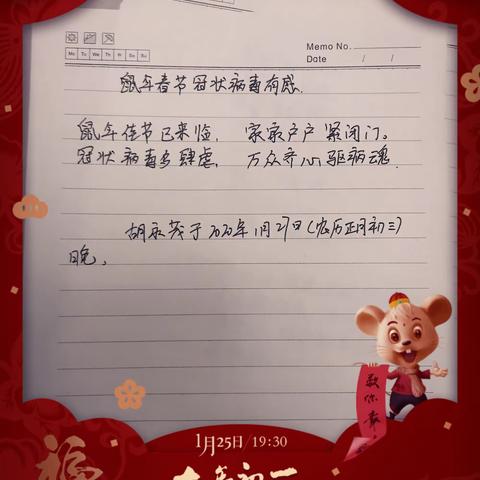 Memo No.
Mo Tu We Th Fr Sa Su
Date / /
鼠年春节冠状病毒有感.
鼠年佳节已来临, 家家户户紧闭门。
冠状病毒多肆虐, 万众齐心驱病魂.
胡永茂于2020年1月27日(农历正月初三)
晚。
1月25日/19:30
福
大年初一